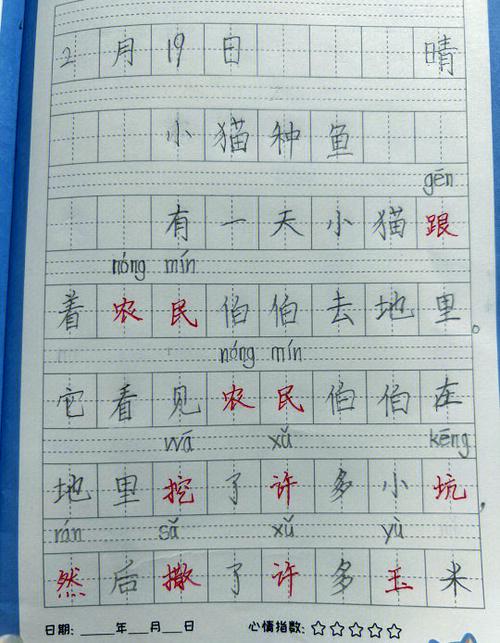 2月19日 晴
小猫种鱼
gēn
有一天小猫跟
nóng mín
着农民伯伯去地里。
nóng mín
它看见农民伯伯在
wā xǔ kēng
地里挖了许多小坑，
rán sǎ xǔ yù
然后撒了许多玉米
日期: ____年___月___日 心情指数: ☆☆☆☆☆